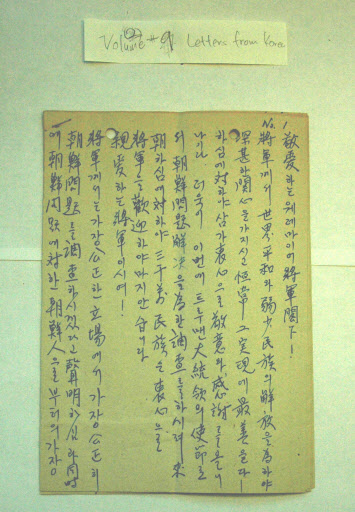 Volume #9 Letters from Korea
No. 1
敬愛하는 웨데마이어 將軍 閣下!
將軍께서 世界平和와 弱少民族의 解放을 爲하야
深甚한 關心을 가지실 恒常 그 實現에 最善을 다
하심에 對하야 삼가 衷心으로 敬意와 感謝를 올니
나이다 더욱이 이번에 트루맨 大統領의 使節로
서 朝鮮問題 解決을 爲한 調査를 하시려 來
朝하심에 對하야 三千萬 民族은 衷心으로
將軍을 歡迎하야마지안습니다
親愛하는 將軍이시여!
將軍께서는 가장 公正한 立場에서 가장 公正히
朝鮮問題를 調査하시겠다고 聲明하심과 同時
에 朝鮮問題에 對한 朝鮮人으로부터의 가장